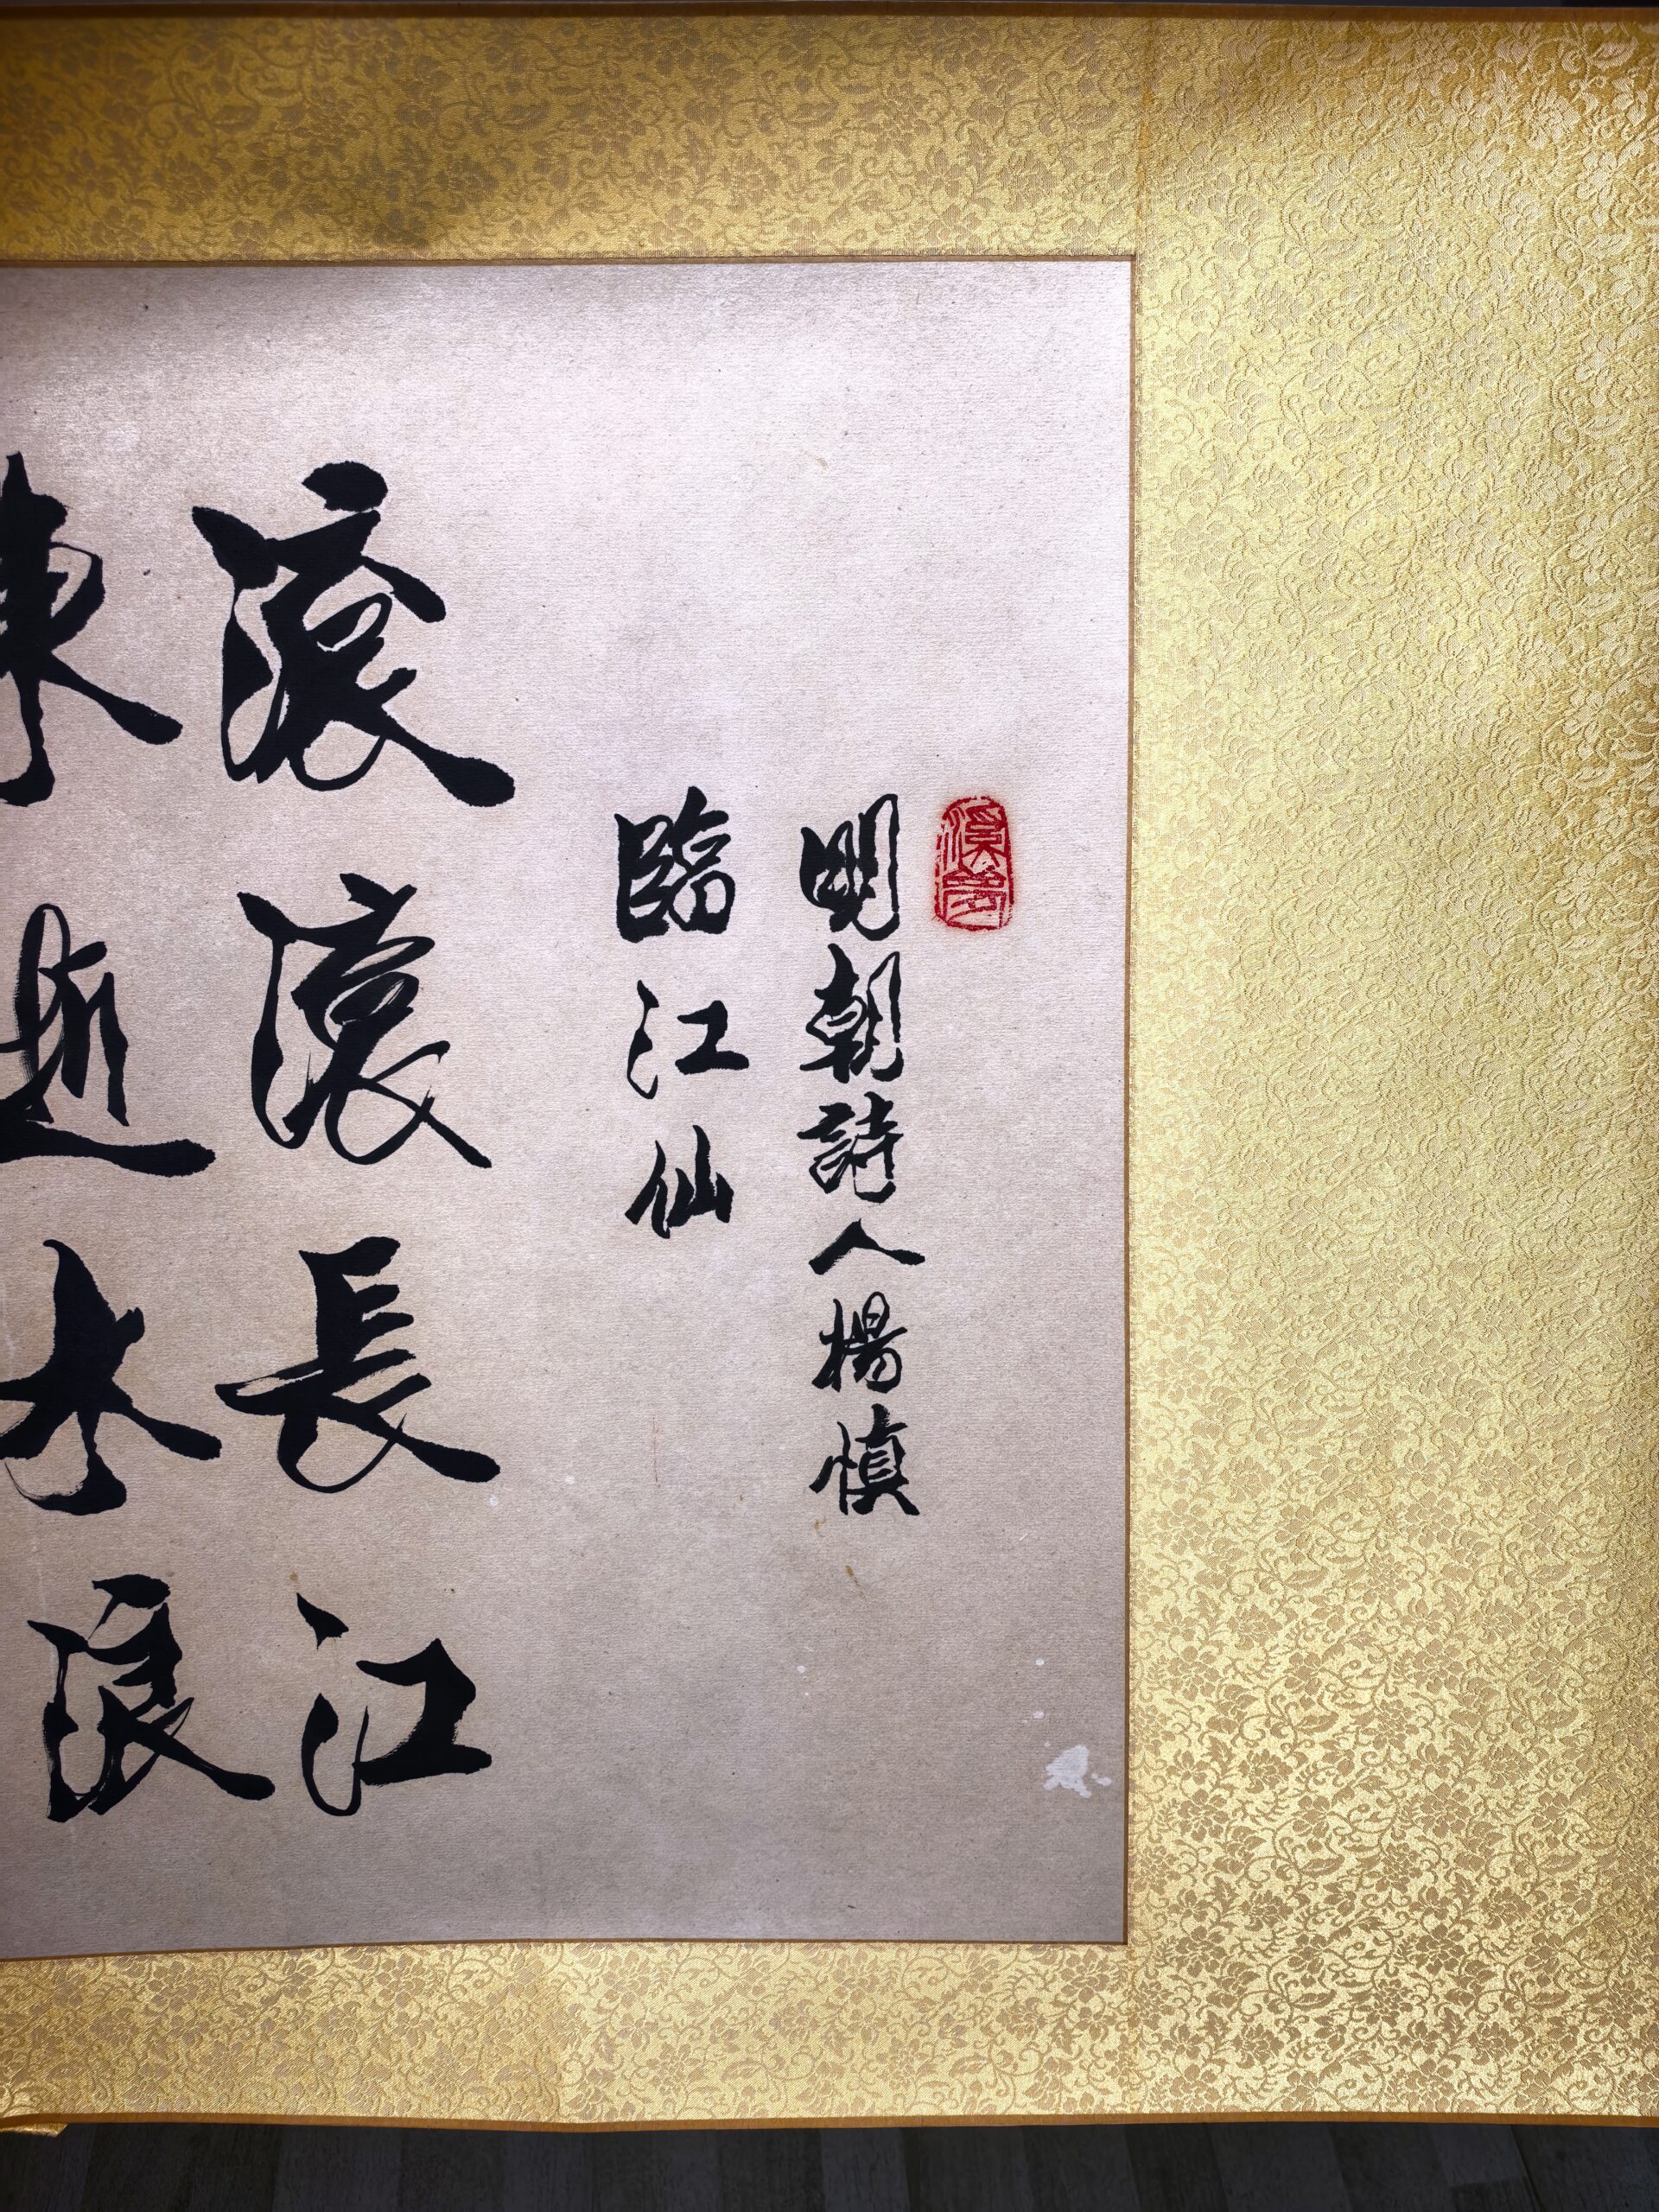 明朝詩人楊慎
臨江仙
滾滾長江
東逝水浪